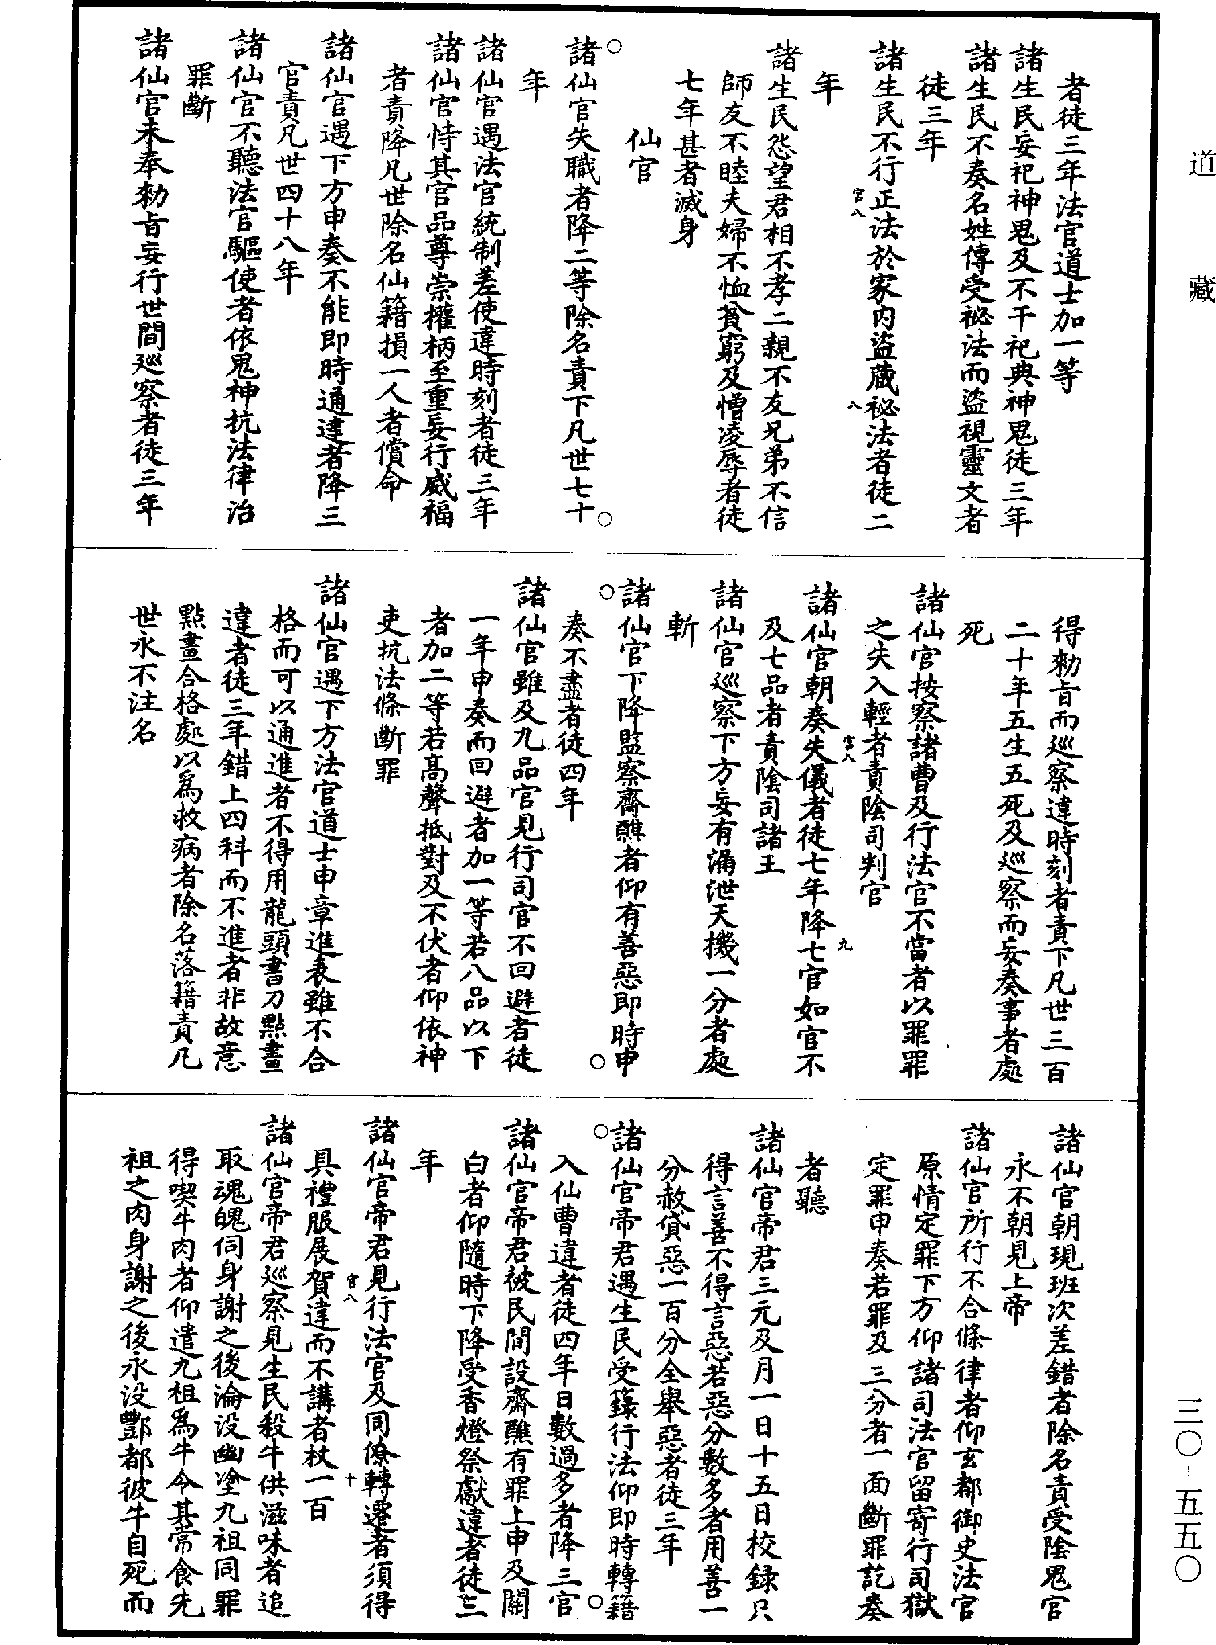 道藏
者徒三年法官道士加一等
諸生民妄祀神鬼及不干祀典神鬼徒三年
諸生民不奏名姓傳受祕法而盜視靈文者
徒三年
諸生民不行正法於家内盜藏祕法者徒二
年
宮八
八
諸生民怨望君相不孝二親不友兄弟不信
師友不睦夫婦不恤貧窮及憎凌辱者徒
七年甚者滅身
仙官
○諸仙官失職者降二等除名責下凡世七十○
年
諸仙官遇法官統制差使違時刻者徒三年
諸仙官恃其官品尊崇權柄至重妄行威福
者責降凡世除名仙籍損一人者償命
諸仙官遇下方申奏不能即時通達者降三
官責凡世四十八年
諸仙官不聽法官驅使者依鬼神抗法律治
罪斷
諸仙官未奉勑旨妄行世間巡察者徒三年
得勑旨而巡察違時刻者責下凡世三百
二十年五生五死及巡察而妄奏事者處
死
諸仙官按察諸曹及行法官不當者以罪罪
之失入輕者責陰司判官
宮八
九
諸仙官朝奏失儀者徒七年降七官如官不
及七品者責陰司諸王
諸仙官巡察下方妄有漏泄天機一分者處
斬
○諸仙官下降監察齋醮者仰有善惡即時申○
奏不盡者徒四年
諸仙官雖及九品官見行司官不回避者徒
一年申奏而回避者加一等若八品以下
者加二等若高聲抵對及不伏者仰依神
吏抗法條斷罪
諸仙官遇下方法官道士申章進表雖不合
格而可以通進者不得用龍頭書刀點畫
違者徒三年錯上四科而不進者非故意
點畫合格處以爲救病者除名落籍責凡
世永不注名
諸仙官朝現班次差錯者除名責受陰鬼官
永不朝見上帝
諸仙官所行不合條律者仰玄都御史法官
原情定罪下方仰諸司法官留寄行司獄
定罪申奏若罪及三分者一面斷罪訖奏
者聽
諸仙官帝君三元及月一日十五日校録只
得言善不得言惡若惡分數多者用善一
分赦貸惡一百分全舉惡者徒三年
○諸仙官帝君遇生民受籙行法仰即時轉籍○
入仙曹違者徒四年日數過多者降三官
諸仙官帝君被民間設齋醮有罪上申及關
白者仰隨時下降受香燈祭獻違者徒三
年
諸仙官帝君見行法官及同僚轉遷者須得
具禮服展賀違而不講者杖一百
宮八
十
諸仙官帝君巡察見生民殺牛供滋味者追
取魂魄伺身謝之後淪没幽塗九祖同罪
得喫牛肉者仰遣九祖爲牛令其常食先
祖之肉身謝之後永没酆都彼牛自死而
三〇-五五〇